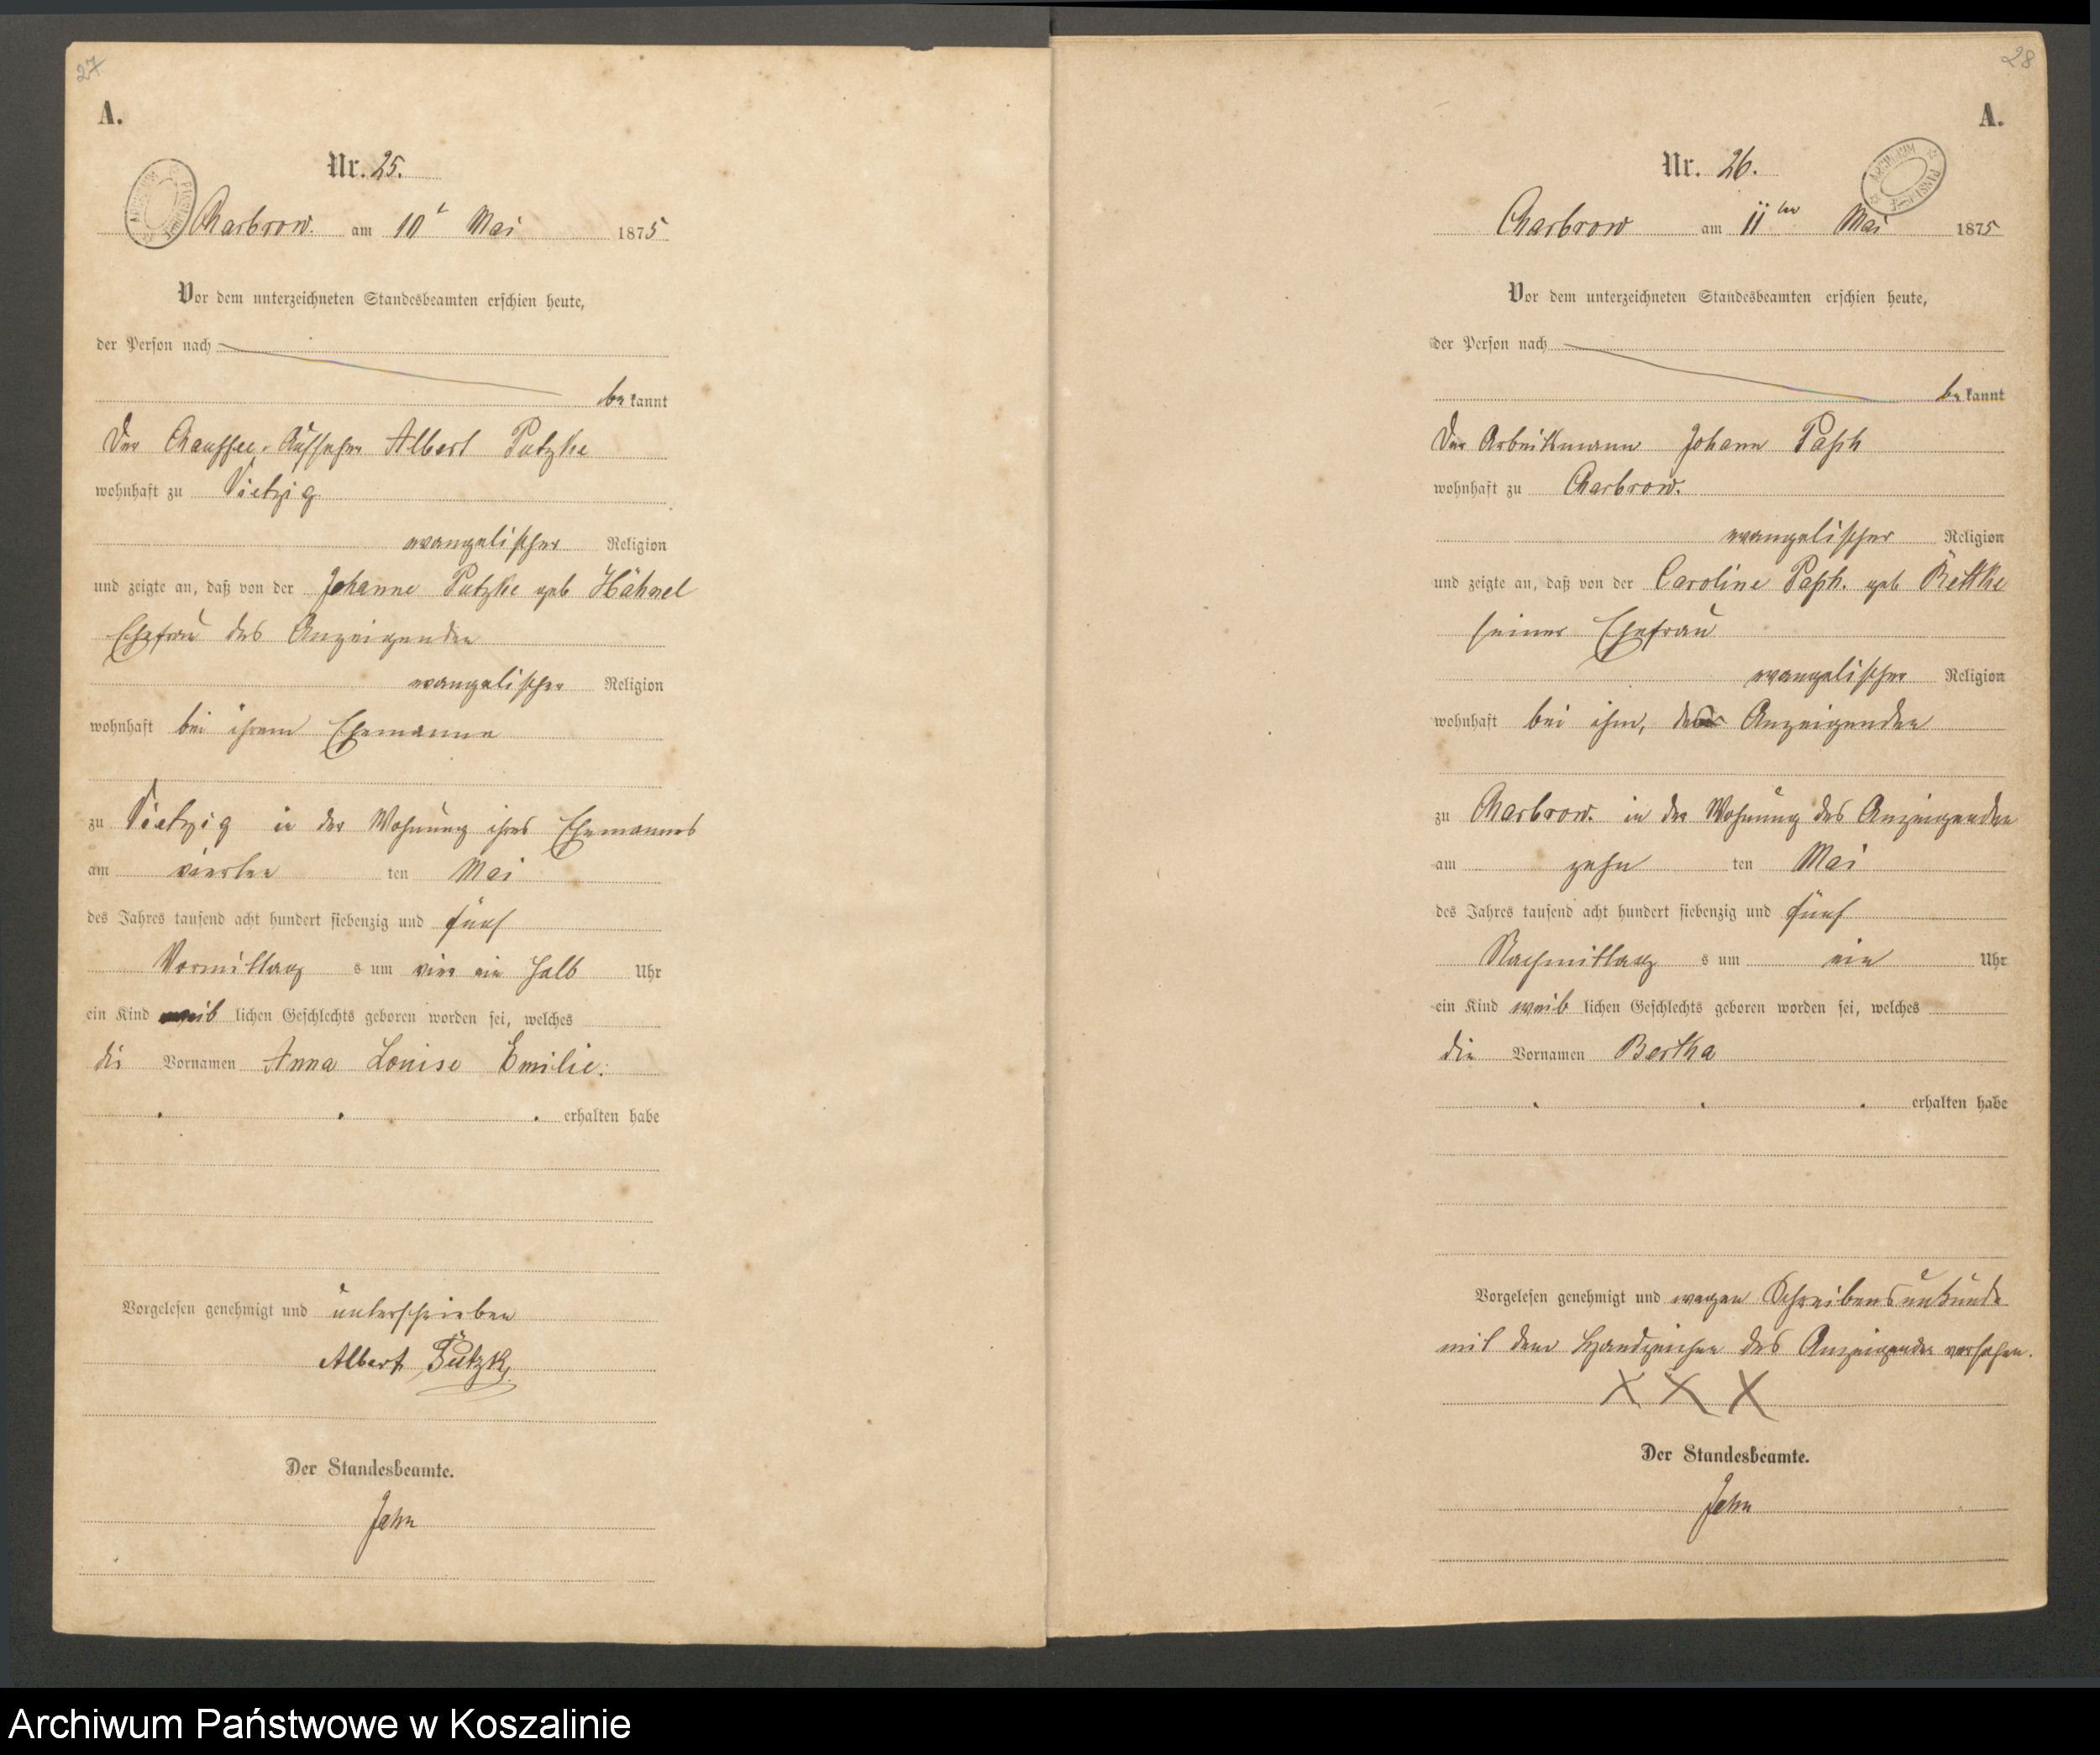 27
A.
Nr. 25.
Charbrow. am 10t Mai 1875
Vor dem unterzeichneten Standesbeamten erschien heute,
der Person nach
bekannt
Der Chaussee-Aufseher Albert Putzke
wohnhaft zu Vietzig
evangelischer Religion
und zeigte an, daß von der Johanne Putzke geb Hähnel
Ehefrau des Anzeigenden
evangelischer Religion
wohnhaft bei ihrem Ehemanne
zu Vietzig in der Wohnung ihres Ehemannes
am vierten ten Mai
des Jahres tausend acht hundert siebenzig und fünf
Vormittag s um vier ein halb Uhr
ein Kind weib lichen Geschlechts geboren worden sei, welches
die Vornamen Anna Louise Emilie.
erhalten habe
Vorgelesen genehmigt und unterschrieben
Albert Putzke
Der Standesbeamte.
Jahn
28
A.
Nr. 26.
Charbrow am 11ten Mai 1875
Vor dem unterzeichneten Standesbeamten erschien heute,
der Person nach
bekannt
Der Arbeitsmann Johann Pasch
wohnhaft zu Charbrow.
evangelischer Religion
und zeigte an, daß von der Caroline Pasch. geb
seiner Ehefrau
evangelischer Religion
wohnhaft bei ihm, Anzeigenden
zu Charbrow. in der Wohnung des Anzeigenden
am zehn ten Mai
des Jahres tausend acht hundert siebenzig und fünf
Nachmittag s um ein Uhr
ein Kind weib lichen Geschlechts geboren worden sei, welches
die Vornamen Bertha
erhalten habe
Vorgelesen genehmigt und wegen Schreibensunkunde
mit dem Handzeichen des Anzeigenden versehen.
X X X
Der Standesbeamte.
Jahn
Archiwum Państwowe w Koszalinie